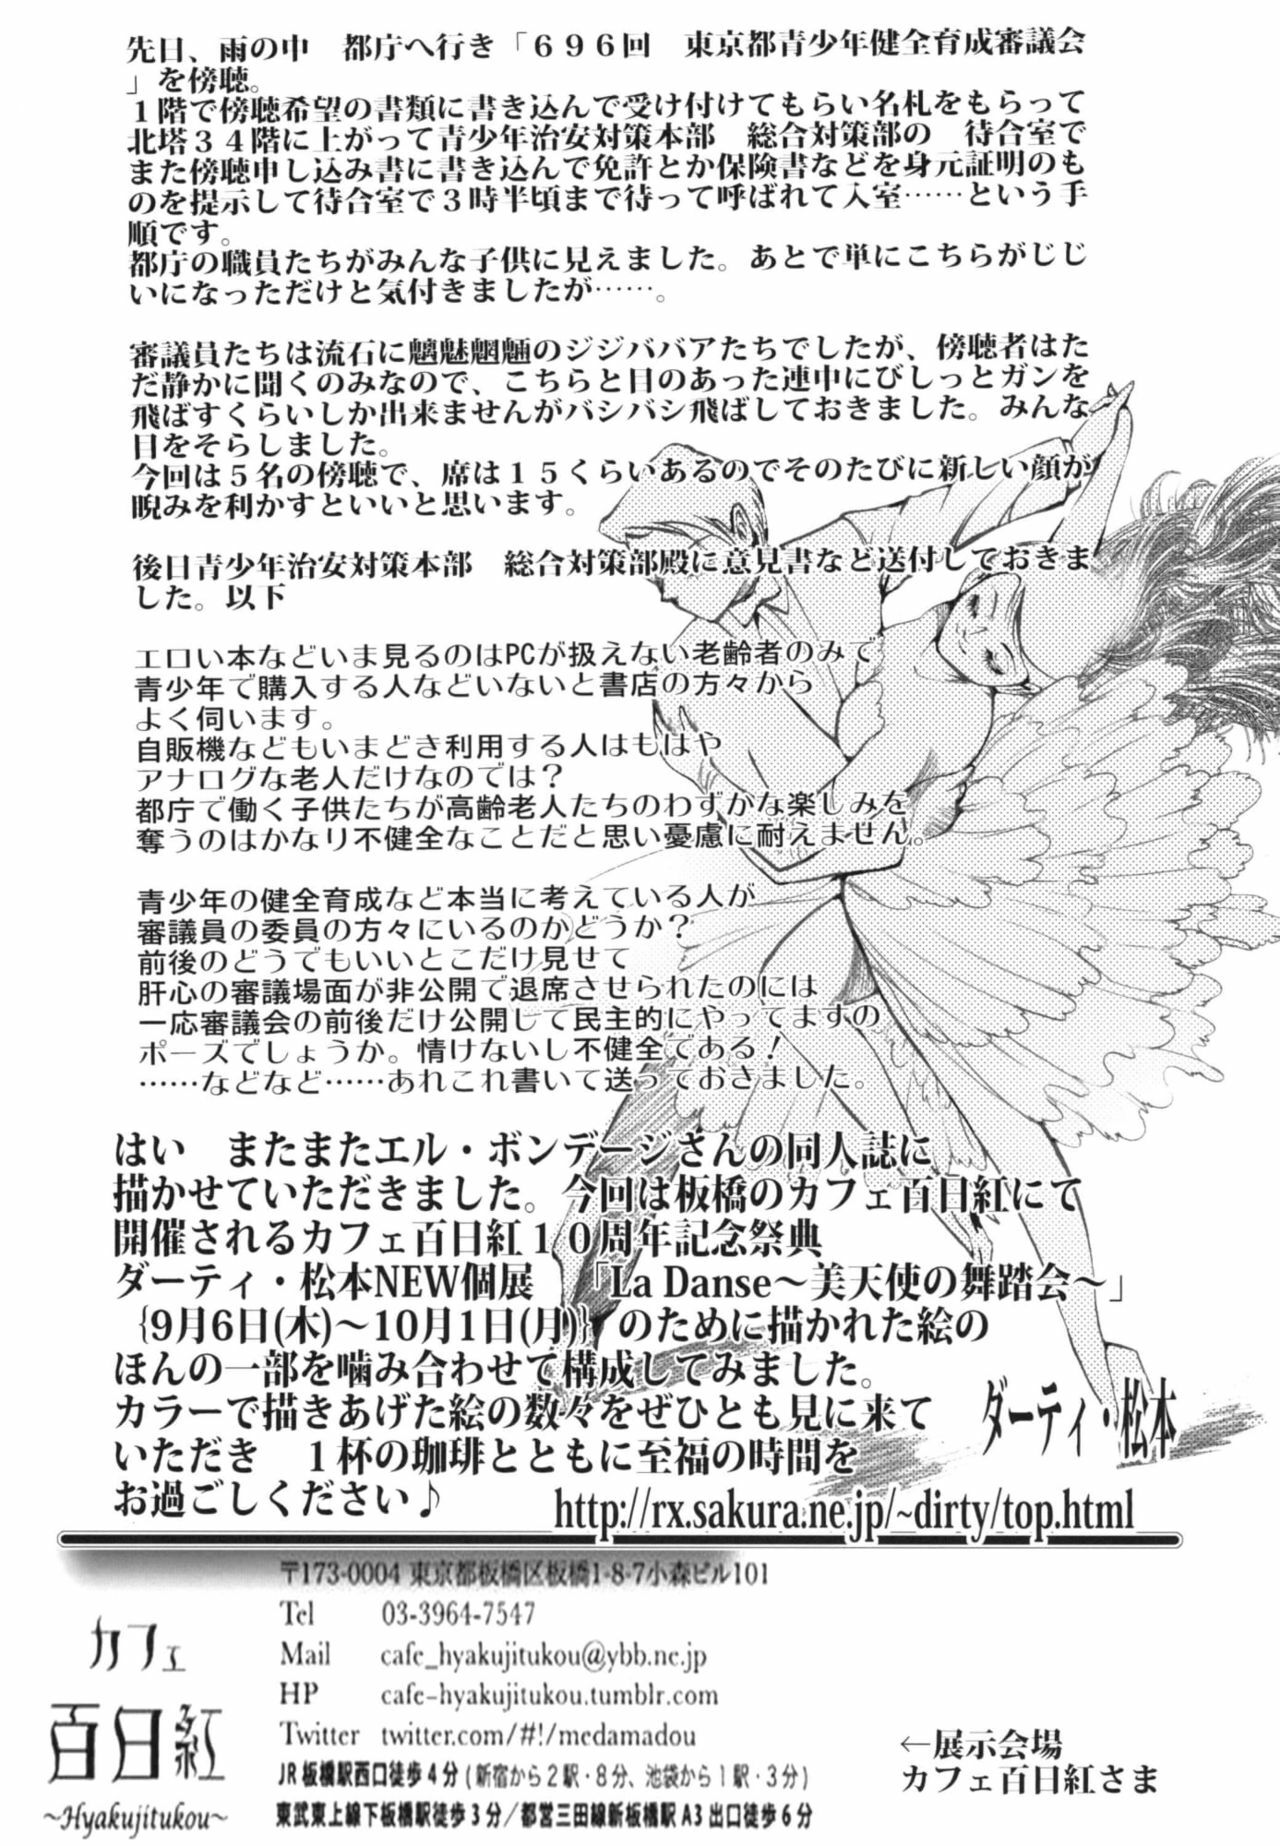 先日、雨の中　都庁へ行き「６９６回　東京都青少年健全育成審議会
」を傍聴。
１階で傍聴希望の書類に書き込んで受け付けてもらい名札をもらって
北塔３４階に上がって青少年治安対策本部　総合対策部の　待合室で
また傍聴申し込み書に書き込んで免許とか保険書などを身元証明のも
のを提示して待合室で３時半頃まで待って呼ばれて入室……という手
順です。
都庁の職員たちがみんな子供に見えました。あとで単にこちらがじじ
いになっただけと気付きましたが……。
審議員たちは流石に魑魅魍魎のジジババアたちでしたが、傍聴者はた
だ静かに聞くのみなので、こちらと目のあった連中にびしっとガンを
飛ばすくらいしか出来ませんがバシバシ飛ばしておきました。みんな
目をそらしました。
今回は５名の傍聴で、席は１５くらいあるのでそのたびに新しい顔が
睨みを利かすといいと思います。
後日青少年治安対策本部　総合対策部殿に意見書など送付しておきま
した。以下
エロい本などいま見るのはPCが扱えない老齢者のみで
青少年で購入する人などいないと書店の方々から
よく伺います。
自販機などもいまどき利用する人はもはや
アナログな老人だけなのでは？
都庁で働く子供たちが高齢老人たちのわずかな楽しみを
奪うのはかなり不健全なことだと思い憂慮に耐えません。
青少年の健全育成など本当に考えている人が
審議員の委員の方々にいるのかどうか？
前後のどうでもいいとこだけ見せて
肝心の審議場面が非公開で退席させられたのには
一応審議会の前後だけ公開して民主的にやってますの
ポーズでしょうか。情けないし不健全である！
……などなど……あれこれ書いて送っておさました。
はい　またまたエル・ボンデージさんの同人誌に
描かせていただきました。今回は板橋のカフェ百日紅にて
開催されるカフェ百日紅１０周年記念祭典
ダーティ・松本NEW個展　「La Danse～美天使の舞踏会～」
{9月6日(木)～10月1日(月)}　のために描かれた絵の
ほんの一部を噛み合わせて構成してみました。
カラーで描きあげた絵の数々をぜひとも見に来て
いただき　１杯の珈琲とともに至福の時間を
お過ごしください♪
ダーティ・松本
http://rx.sakura.ne.jp/~dirty/top.html
カフェ
百日紅
~Hyakujitukou~
〒173-0004 東京都板橋区板橋1-8-7小森ビル101
Tel 03-3964-7547
Mail cafe_hyakujitukou@ybb.ne.jp
HP cafe-hyakujitukou.tumblr.com
Twitter twitter.com/#!/medamadou
JR 板橋駅西口徒歩４分（新宿から２駅・８分、池袋から１駅・３分）
東武東上線下板橋駅徒歩３分／都営三田線新板橋駅 A3 出口徒歩６分
←展示会場
カフェ百日紅さま